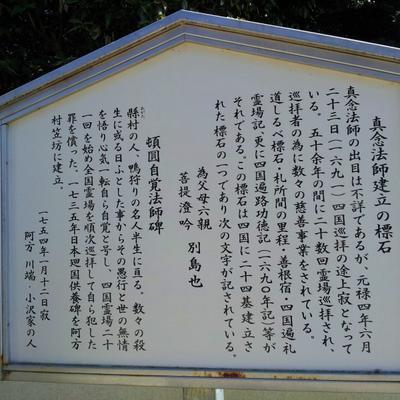 真念法師建立の標石
真念法師の出目は不詳であるが、元禄四年六月
二十三日(一六九一)四国巡拝の途上寂となって
いる。五十余年の間に二十数回霊場巡拝され、
巡拝者の為に数々の慈善事業をされている。
道しるべ標石・札所間の里程・善根宿・四国遍礼
霊場記、更に四国遍路功徳記(一六九〇年記)等が
それである。この標石は四国に二十四基建立さ
れた標石の一つであり次の文字が記されている。
為父母六親
菩提澄吟 別島也
頓圓自覚法師碑
縣村の人、鴨狩りの名人半生に亘る。数々の殺
生に或る日ふとした事からその愚行と世の無情
を悟り心気一転自ら自覚と号し、四国霊場二十
一回を始め全国霊場を順次巡拝して自ら犯した
罪を償った。一七三五年日本廻国供養碑を阿方
村笠坊に建立。
一七五四年一月十二日寂
阿方 川端 小沢家の人